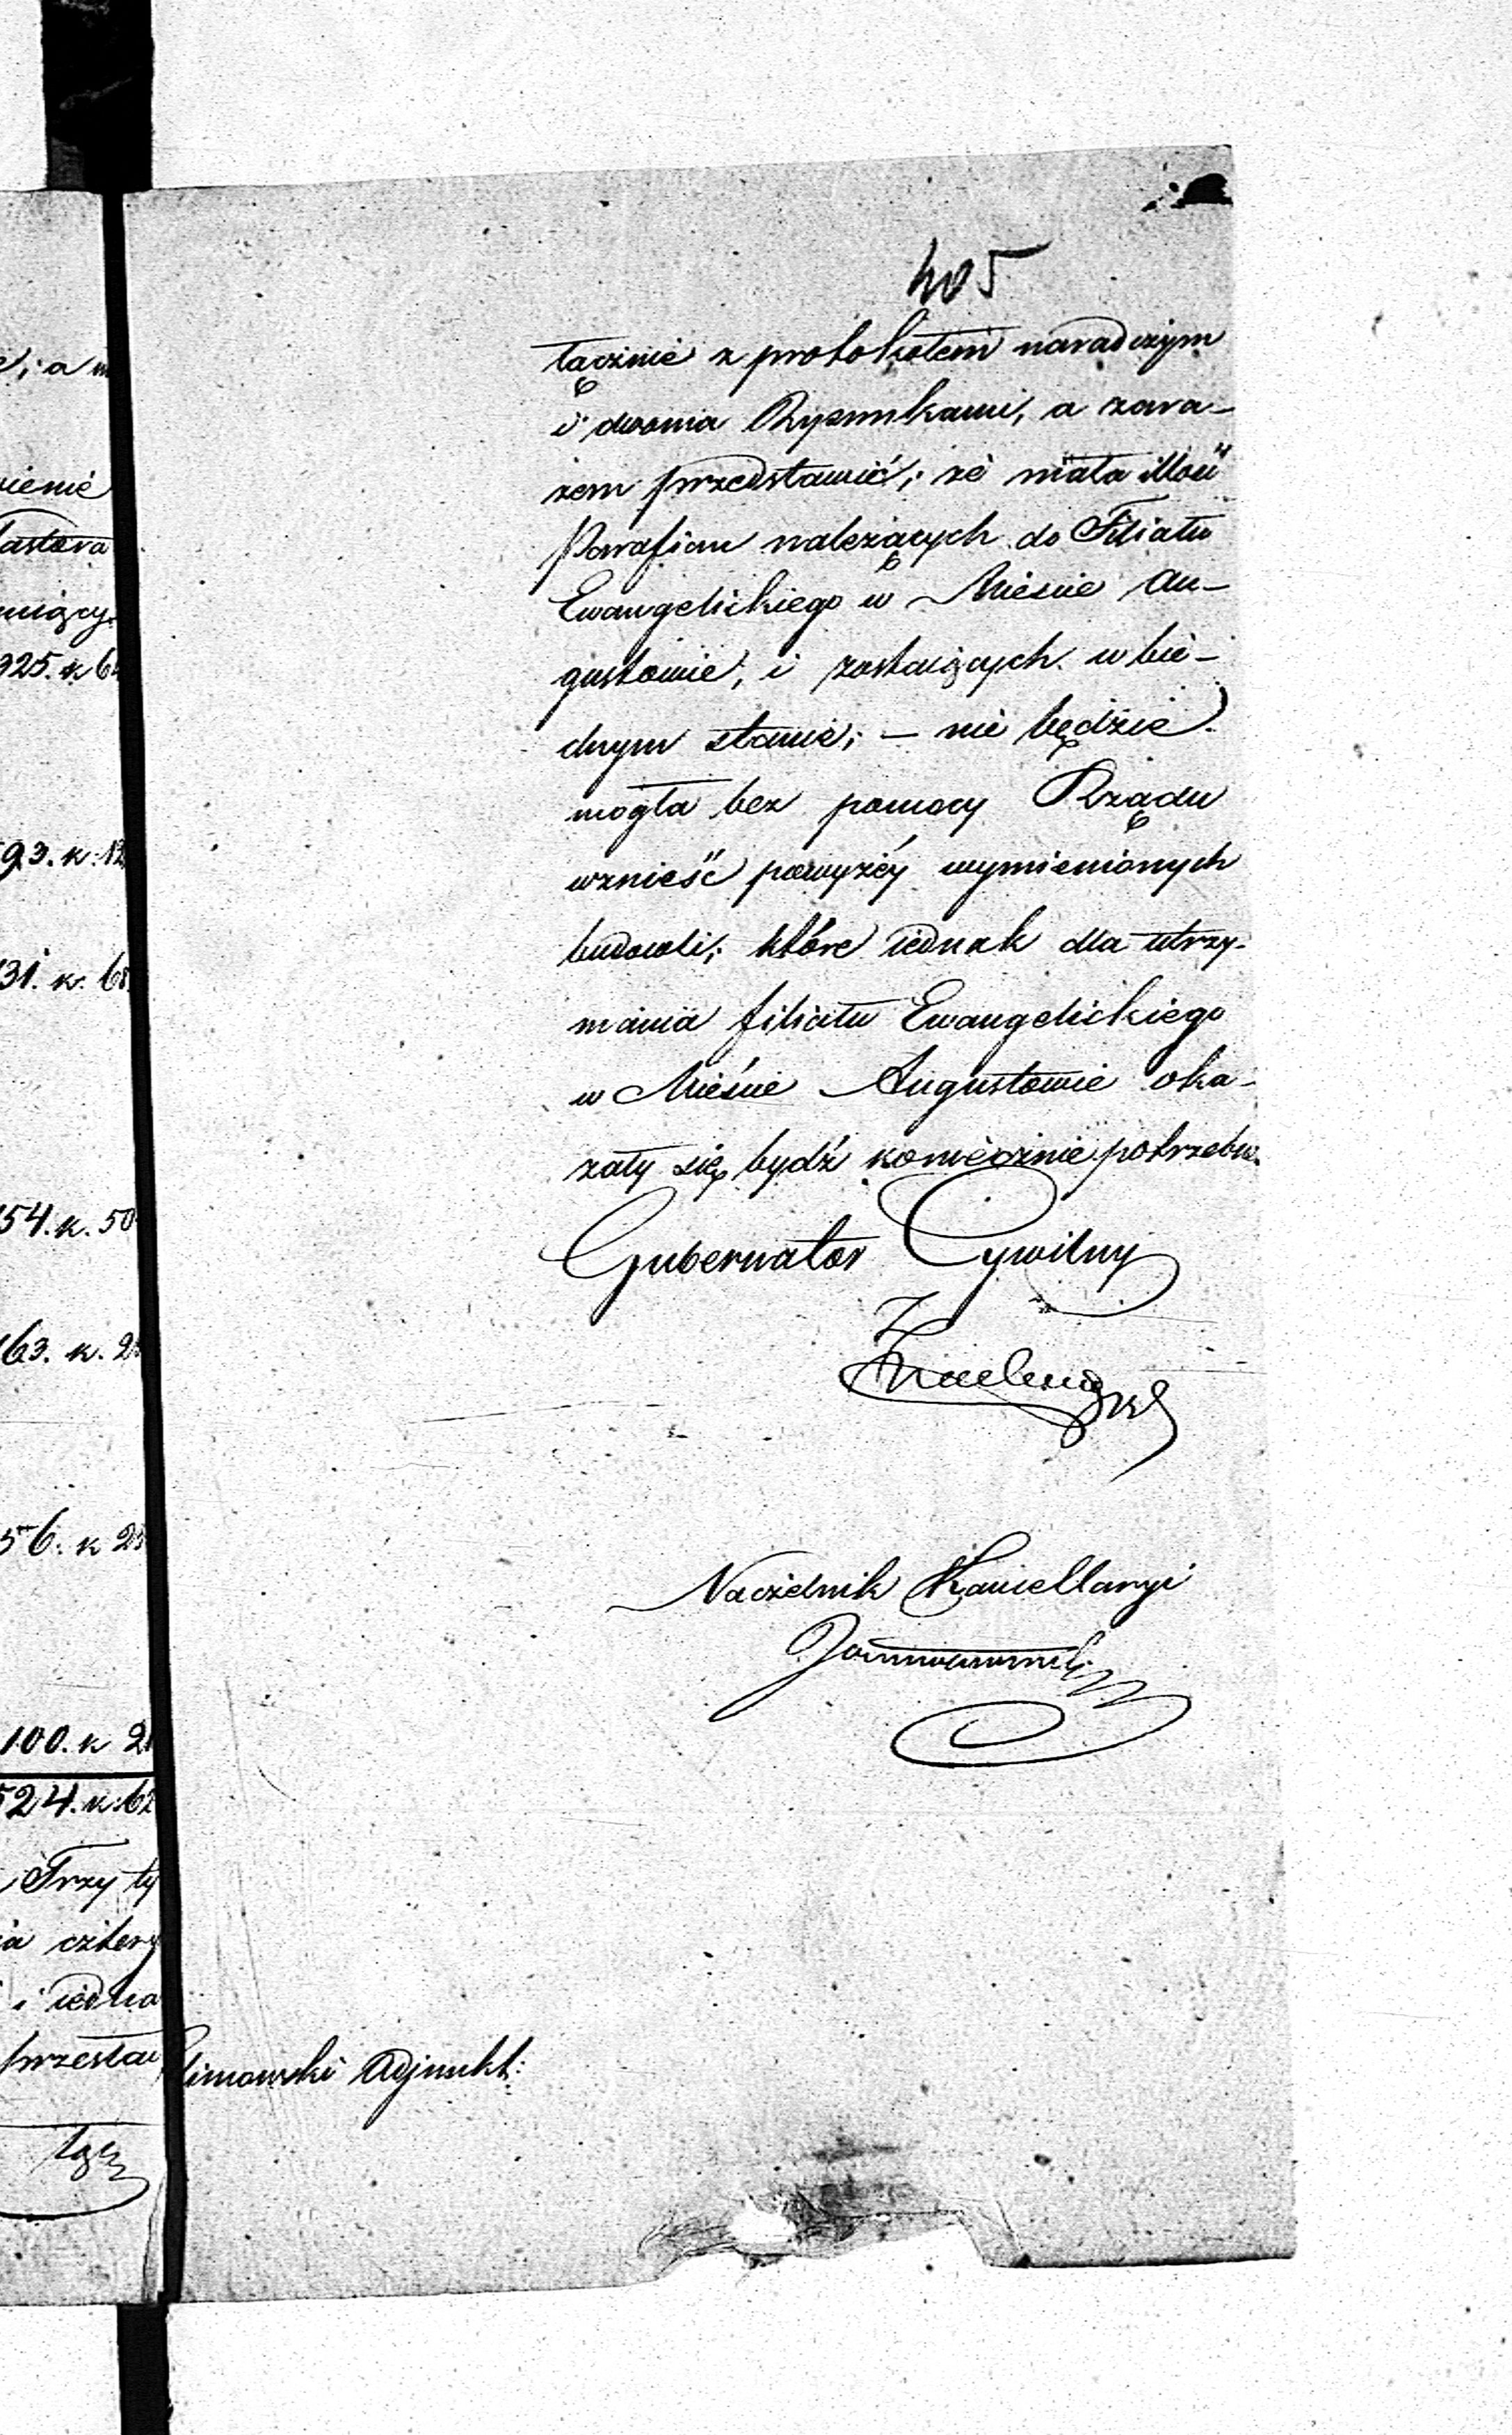 405
łącznie z protokołem naradczym
i dwoma Rysunkami, a zara-
zem przedstawić; że mała illość
Parafian należących do Filiału
Ewangelickiego w Mieście Au-
gustowie, i zostaiących w bie-
dnym stanie; — nie będzie
mogła bez pomocy Rządu
wznieść powyżéy wymienionych
budowli; które iednak dla utrzy-
mania filiału Ewangelickiego
w Mieście Augustowie oka-
zały się bydź koniecznie potrzebne.
Gubernator Cywilny
Naczelnik Kancellaryi
limowski Adjunkt:
e; a
wienie
astora
925. k 6
93. k. 12
31. k. 68
54. k. 50
63. k. 2
56. k 25
100. k 2
524. k. 62
Trzy ty
ia cztery
i iedna
przesta